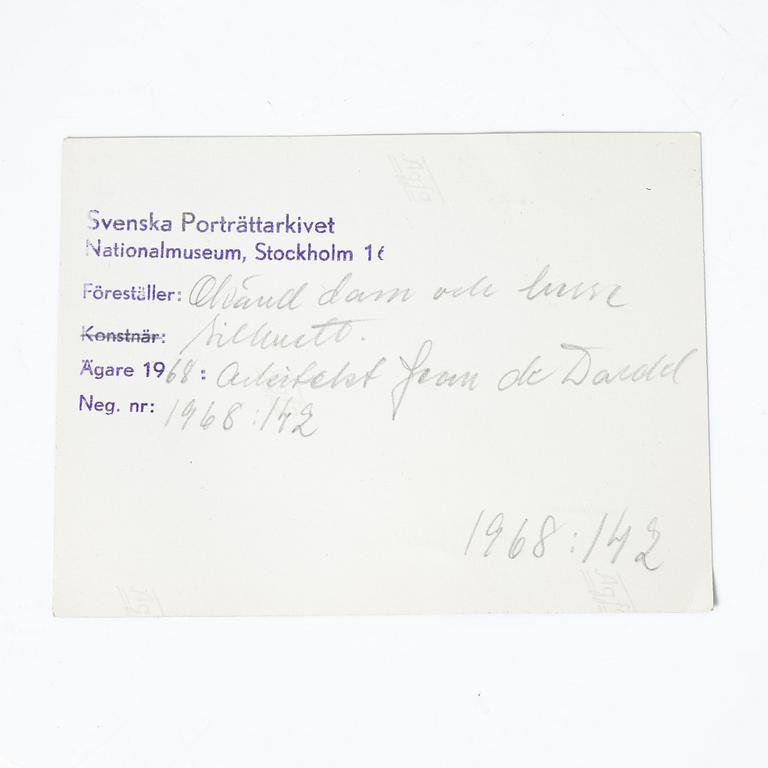 Agfa
Svenska Porträttarkivet
Nationalmuseum, Stockholm 16
Föreställer: Okänd dam och herre
Konstnär: Silhuett.
Ägare 1968: Arkitekt Jean de Dardel
Neg. nr: 1968:142
1968:142
Agfa
Agfa